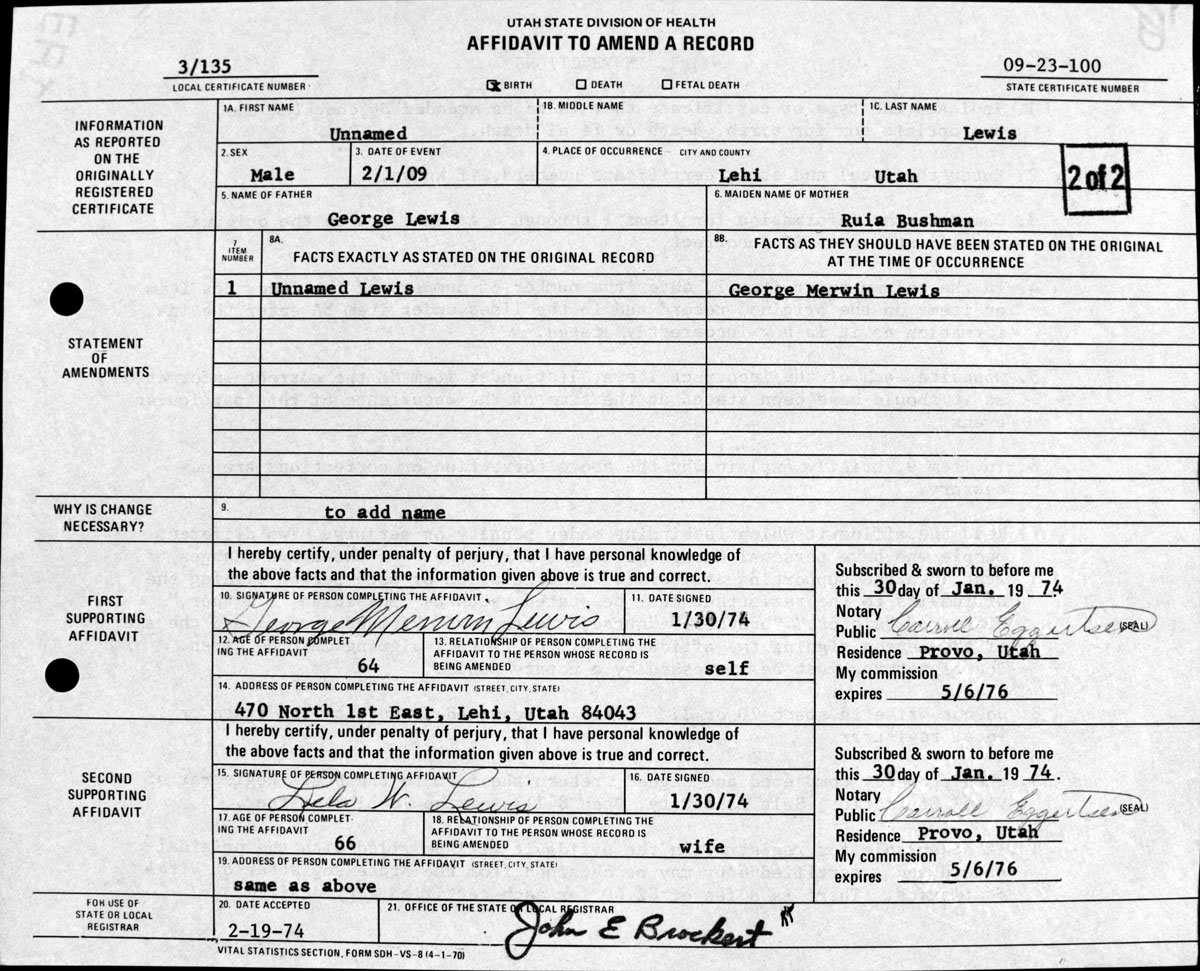 UTAH STATE DIVISION OF HEALTH
AFFIDAVIT TO AMEND A RECORD
3/135
LOCAL CERTIFICATE NUMBER
☒ BIRTH ☐ DEATH ☐ FETAL DEATH
09-23-100
STATE CERTIFICATE NUMBER
INFORMATION
AS REPORTED
ON THE
ORIGINALLY
REGISTERED
CERTIFICATE
1A. FIRST NAME 1B. MIDDLE NAME 1C. LAST NAME
Unnamed Lewis
2. SEX 3. DATE OF EVENT 4. PLACE OF OCCURRENCE - CITY AND COUNTY
Male 2/1/09 Lehi Utah
2 of 2
5. NAME OF FATHER 6. MAIDEN NAME OF MOTHER
George Lewis Ruia Bushman
STATEMENT
OF
AMENDMENTS
7
ITEM
NUMBER
8A.
FACTS EXACTLY AS STATED ON THE ORIGINAL RECORD
8B. FACTS AS THEY SHOULD HAVE BEEN STATED ON THE ORIGINAL
AT THE TIME OF OCCURRENCE
1 Unnamed Lewis George Merwin Lewis
WHY IS CHANGE
NECESSARY?
9. to add name
FIRST
SUPPORTING
AFFIDAVIT
I hereby certify, under penalty of perjury, that I have personal knowledge of
the above facts and that the information given above is true and correct.
10. SIGNATURE OF PERSON COMPLETING THE AFFIDAVIT 11. DATE SIGNED
George Merwin Lewis 1/30/74
12. AGE OF PERSON COMPLET
ING THE AFFIDAVIT
64
13. RELATIONSHIP OF PERSON COMPLETING THE
AFFIDAVIT TO THE PERSON WHOSE RECORD IS
BEING AMENDED self
14. ADDRESS OF PERSON COMPLETING THE AFFIDAVIT (STREET, CITY, STATE)
470 North 1st East, Lehi, Utah 84043
Subscribed & sworn to before me
this 30 day of Jan. 19 74
Notary
Public Carroll Eggertsen (SEAL)
Residence Provo, Utah
My commission
expires 5/6/76
SECOND
SUPPORTING
AFFIDAVIT
I hereby certify, under penalty of perjury, that I have personal knowledge of
the above facts and that the information given above is true and correct.
15. SIGNATURE OF PERSON COMPLETING AFFIDAVIT 16. DATE SIGNED
Lela W. Lewis 1/30/74
17. AGE OF PERSON COMPLET-
ING THE AFFIDAVIT
66
18. RELATIONSHIP OF PERSON COMPLETING THE
AFFIDAVIT TO THE PERSON WHOSE RECORD IS
BEING AMENDED wife
19. ADDRESS OF PERSON COMPLETING THE AFFIDAVIT (STREET, CITY, STATE)
same as above
Subscribed & sworn to before me
this 30 day of Jan. 19 74.
Notary
Public Carroll Eggertsen (SEAL)
Residence Provo, Utah
My commission
expires 5/6/76
FOR USE OF
STATE OR LOCAL
REGISTRAR
20. DATE ACCEPTED 21. OFFICE OF THE STATE OR LOCAL REGISTRAR
2-19-74 John E Brockert
VITAL STATISTICS SECTION, FORM SDH-VS-8 (4-1-70)